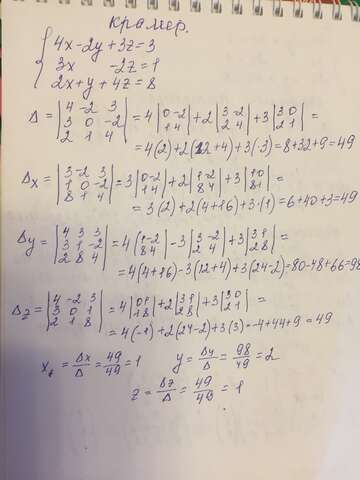 Крамер.
4x-2y+3z=3
3x -2z=1
2x+y+4z=8
Δ = |4 -2 3; 3 0 -2; 2 1 4| = 4|0 -2; 1 4| + 2|3 -2; 2 4| + 3|3 0; 2 1| =
= 4(2)+2(12+4)+3(3)=8+32+9=49
Δx = |3 -2 3; 1 0 -2; 8 1 4| = 3|0 -2; 1 4| + 2|1 -2; 8 4| + 3|1 0; 8 1| =
= 3(2)+2(4+16)+3·(1)=6+40+3=49
Δy = |4 3 3; 3 1 -2; 2 8 4| = 4|1 -2; 8 4| - 3|3 -2; 2 4| + 3|3 1; 2 8| =
=4(4+16)-3(12+4)+3(24-2)=80-48+66=98
Δz = |4 -2 3; 3 0 1; 2 1 8| = 4|0 1; 1 8| + 2|3 1; 2 8| + 3|3 0; 2 1| =
= 4(-1)+2(24-2)+3(3)=-4+44+9=49
x = Δx/Δ = 49/49 = 1 y = Δy/Δ = 98/49 = 2
z = Δz/Δ = 49/49 = 1